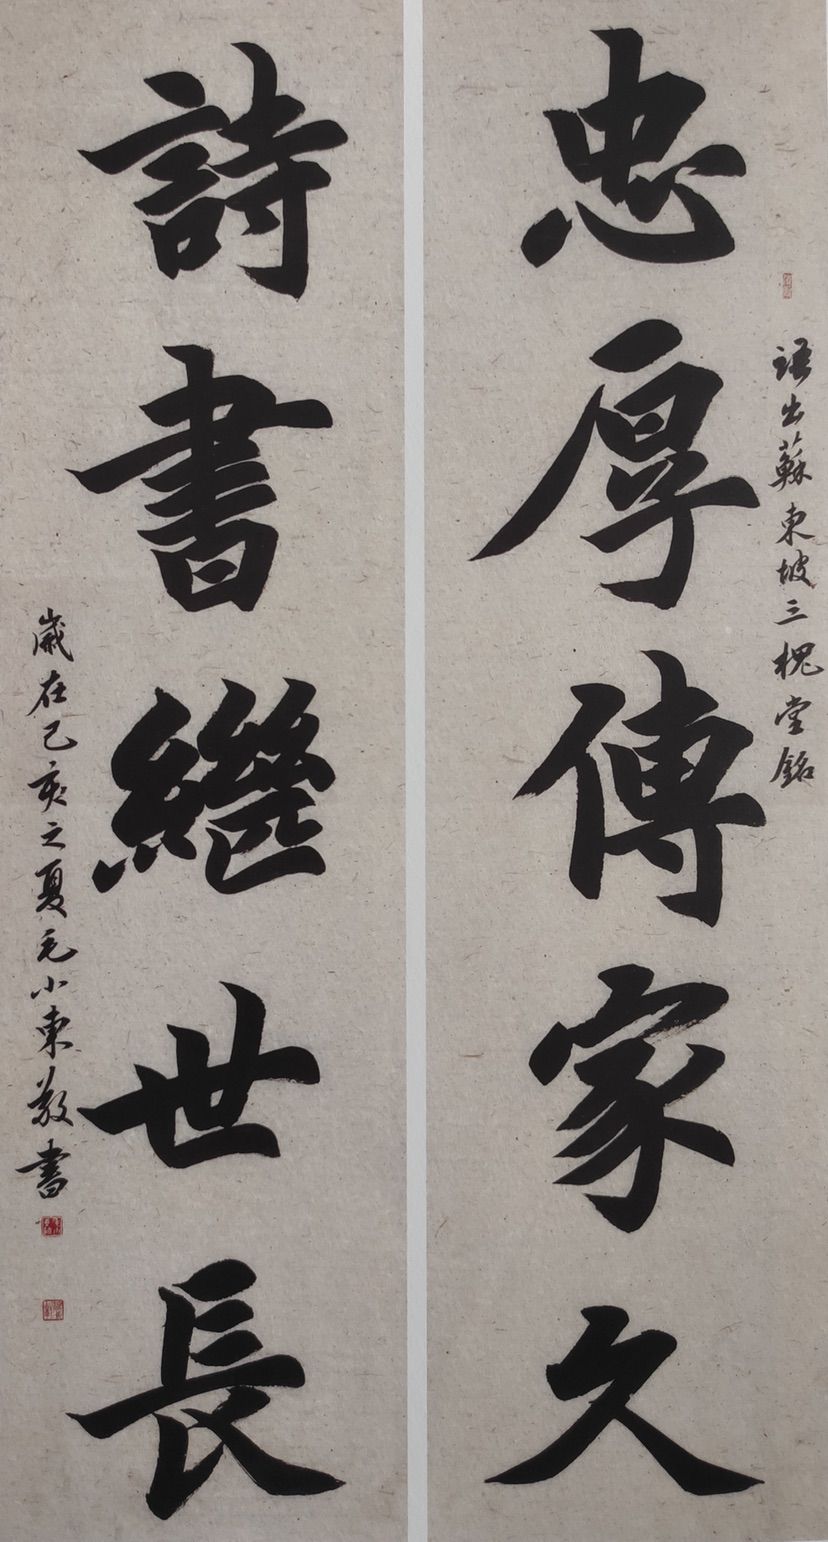 忠厚傳家久
語出蘇東坡三槐堂銘
詩書繼世長
歲在己亥之夏毛小東敬書